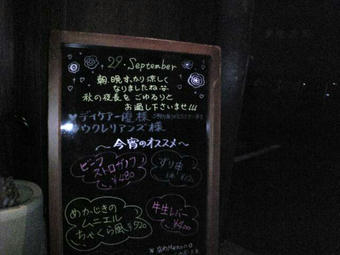 29. September
朝、晩すっかり涼しく
なりましたね
秋の夜長をごゆるりと
お過し下さいませ!!!
♥デイケアー優様
♥ウクレリアンズ様
~今宵のオススメ~
ビーフ
ストロガノフ
¥480
すり身
めかじきの
ムニエル
ちゃくら風¥520
牛生レバー
¥400